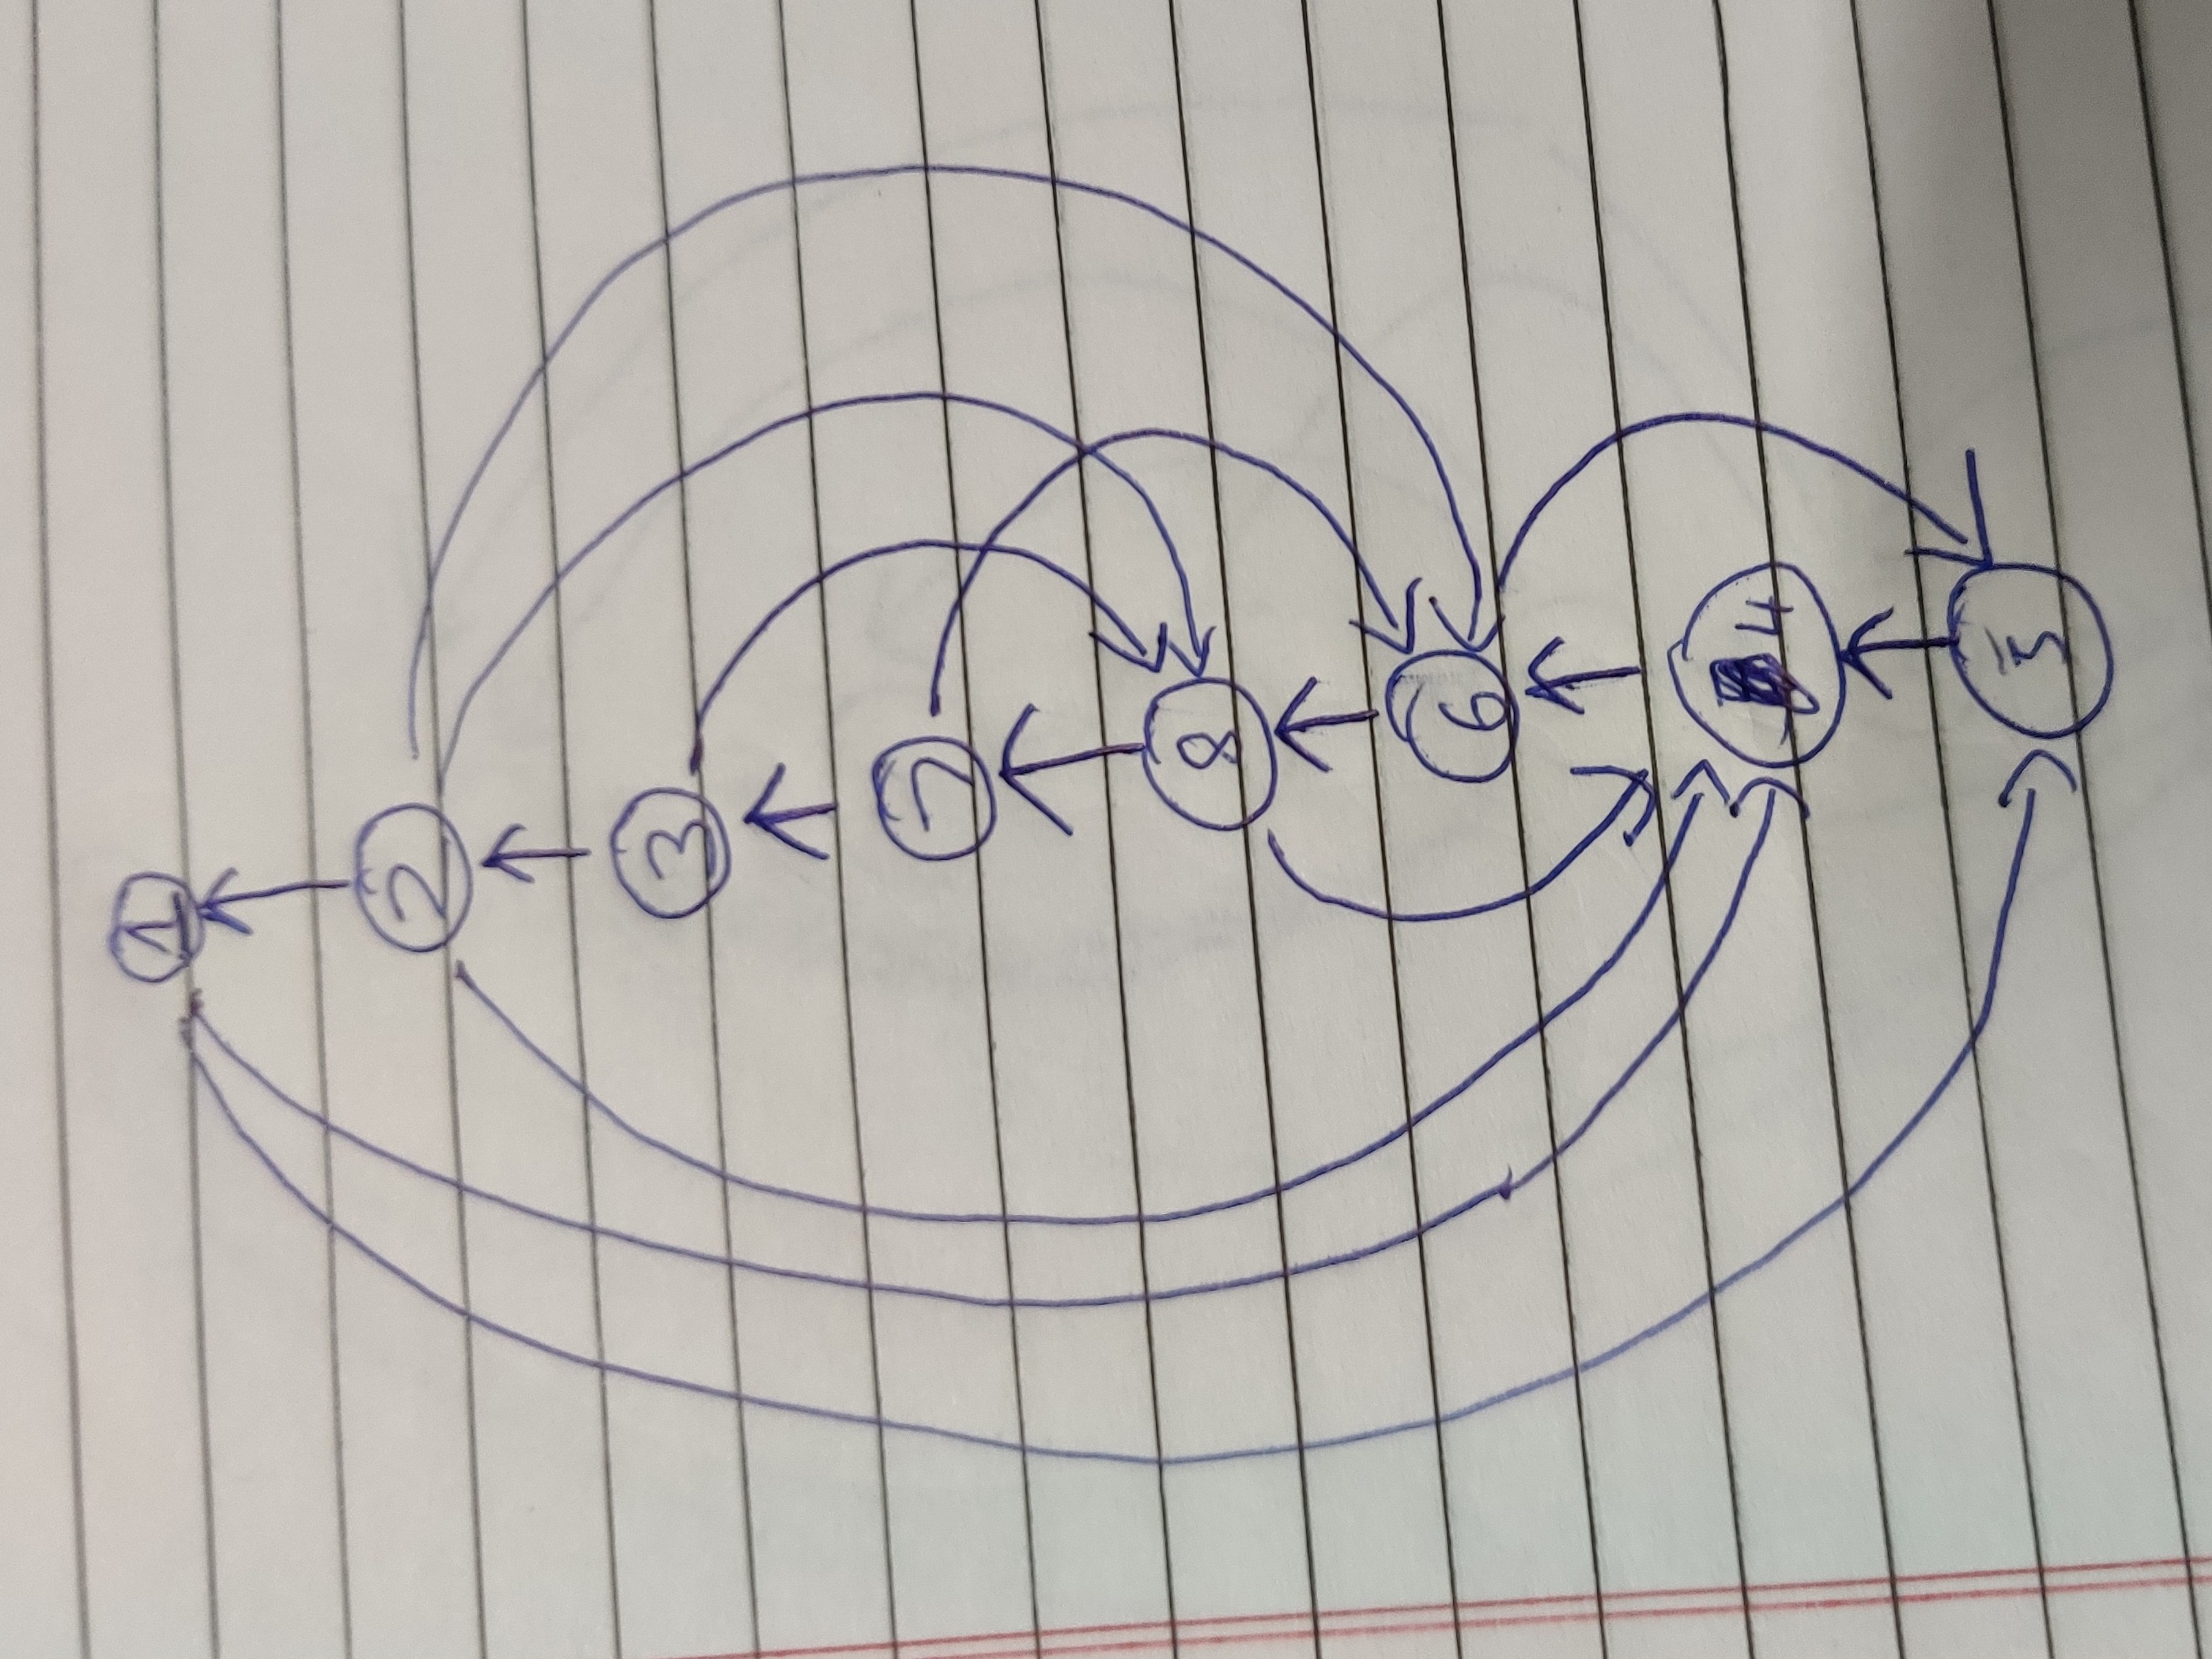 1
2
3
7
8
6
4
5